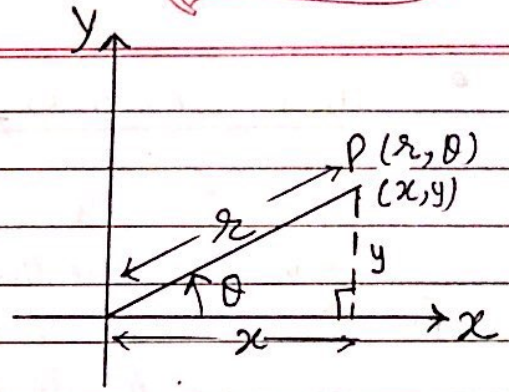 y
P (r, θ)
(x,y)
r
y
θ
x
x